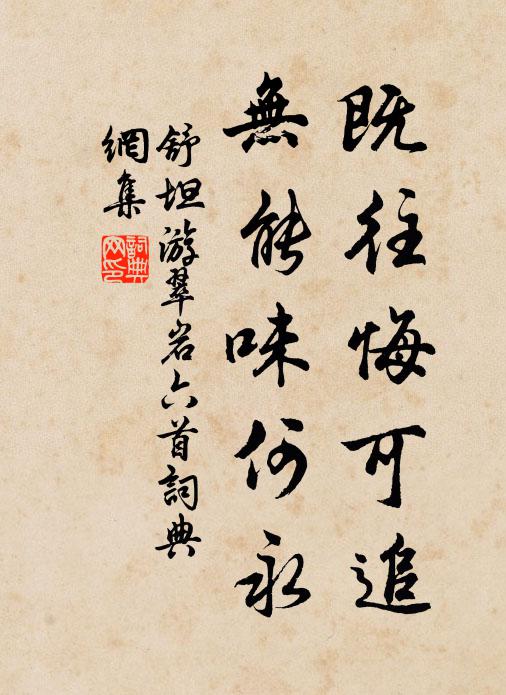 既往悔可追
無能味何永
舒坦游翠岩六首詞典
網集
詞典
网印